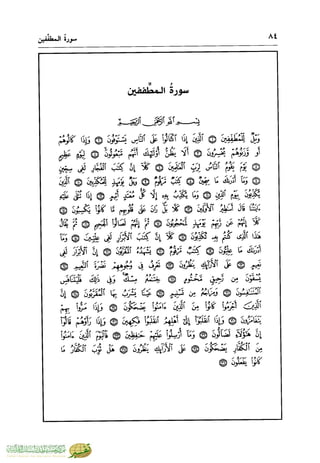 ٨٤ سورة المطففين
سورة المطففين
بسم الله الرحمن الرحيم
ويل للمطففين ١ الذين إذا اكتالوا على الناس يستوفون ٢ وإذا كالوهم
أو وزنوهم يخسرون ٣ ألا يظن أولئك أنهم مبعوثون ٤ ليوم عظيم
٥ يوم يقوم الناس لرب العالمين ٦ كلا إن كتاب الفجار لفي سجين
٧ وما أدراك ما سجين ٨ كتاب مرقوم ٩ ويل يومئذ للمكذبين ١٠ الذين
يكذبون بيوم الدين ١١ وما يكذب به إلا كل معتد أثيم ١٢ إذا تتلى عليه
آياتنا قال أساطير الأولين ١٣ كلا بل ران على قلوبهم ما كانوا يكسبون ١٤
كلا إنهم عن ربهم يومئذ لمحجوبون ١٥ ثم إنهم لصالوا الجحيم ١٦ ثم يقال
هذا الذي كنتم به تكذبون ١٧ كلا إن كتاب الأبرار لفي عليين ١٨ وما
أدراك ما عليون ١٩ كتاب مرقوم ٢٠ يشهده المقربون ٢١ إن الأبرار لفي
نعيم ٢٢ على الأرائك ينظرون ٢٣ تعرف في وجوههم نضرة النعيم ٢٤
يسقون من رحيق مختوم ٢٥ ختامه مسك وفي ذلك فليتنافس
المتنافسون ٢٦ ومزاجه من تسنيم ٢٧ عينا يشرب بها المقربون ٢٨ إن
الذين أجرموا كانوا من الذين آمنوا يضحكون ٢٩ وإذا مروا بهم
يتغامزون ٣٠ وإذا انقلبوا إلى أهلهم انقلبوا فكهين ٣١ وإذا رأوهم قالوا
إن هؤلاء لضالون ٣٢ وما أرسلوا عليهم حافظين ٣٣ فاليوم الذين آمنوا
من الكفار يضحكون ٣٤ على الأرائك ينظرون ٣٥ هل ثوب الكفار ما
كانوا يفعلون ٣٦